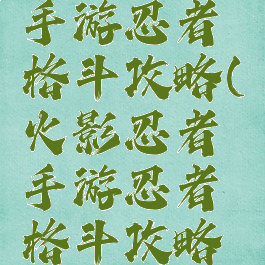 手游忍者
格斗攻略(
火影忍者
手游忍者
格斗攻略